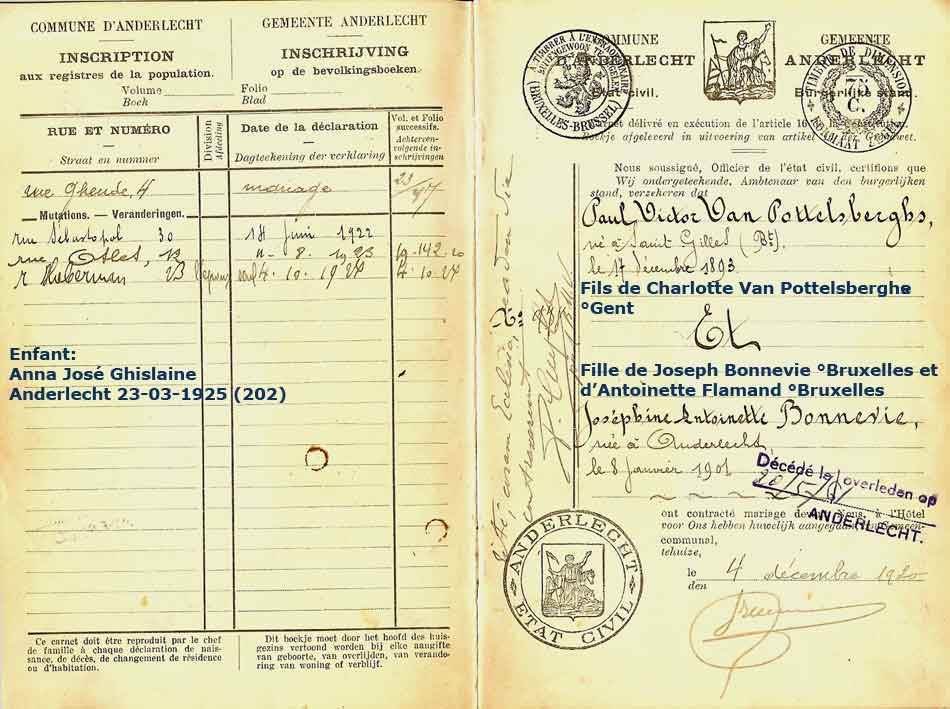 COMMUNE D'ANDERLECHT
GEMEENTE ANDERLECHT
INSCRIPTION
aux registres de la population.
INSCHRIJVING
op de bevolkingsboeken.
Volume
Boek
Folio
Blad
RUE ET NUMÉRO
Straat en nummer
Division
Afdeeling
Date de la déclaration
Dagteekening der verklaring
Vol. et Folio
successifs.
Achtereen-
volgende in-
schrijvingen
rue Gheude, 4
mariage
23
Mutations. — Veranderingen.
rue Sébastopol 30
18 juin 1922
rue Otlet, 12
11 - 8. 1923
19-142-20
r 23
4. 10. 1924
4. 10. 24
Enfant:
Anna José Ghislaine
Anderlecht 23-03-1925 (202)
Ce carnet doit être reproduit par le chef
de famille à chaque déclaration de nais-
sance, de décès, de changement de résidence
ou d'habitation.
Dit boekje moet door het hoofd des huis-
gezins vertoond worden bij elke aangifte
van geboorte, van overlijden, van verande-
ring van woning of verblijf.
COMMUNE
D'ANDERLECHT
État civil.
GEMEENTE
ANDERLECHT
Burgerlijke stand.
A TIMBRER À L'EXTRAORDINAIRE
BUITENGEWOON TE ZEGELEN
(BRUXELLES-BRUSSEL)
TIMBRE DE DIMENSION
75
C.
FORMAAT ZEGEL
Carnet délivré en exécution de l'article 16 de la Constitution.
Boekje afgeleverd in uitvoering van artikel der Grondwet.
Nous soussigné, Officier de l'état civil, certifions que
Wij ondergeteekende, Ambtenaar van den burgerlijken
stand, verzekeren dat
Paul Victor Van Pottelsberghs,
né à Saint Gilles (Bt).
le 17 décembre 1893.
Fils de Charlotte Van Pottelsberghe
°Gent
Et
Fille de Joseph Bonnevie °Bruxelles et
d'Antoinette Flamand °Bruxelles
Joséphine Antoinette Bonnevie,
née à Anderlecht
le 8 janvier 1901
Décédé le overleden op
20/5/81
ANDERLECHT.
ont contracté mariage devant Nous, à l'Hôtel
voor Ons hebben huwelijk aangegaan, ten Gemeen-
communal,
tehuize,
le
den
4 décembre 1920
ANDERLECHT
ETAT CIVIL